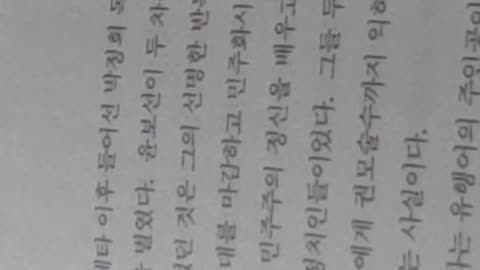 이후 들어선 박정희
윤보선이 두 차
것은 그의 선명한
대를 마감하고 민주화시
민주주의 정신을 배우고
정치인들이었다. 그들 두
에게 권모술수까지
는 사실이다.
유행어의 주인공이